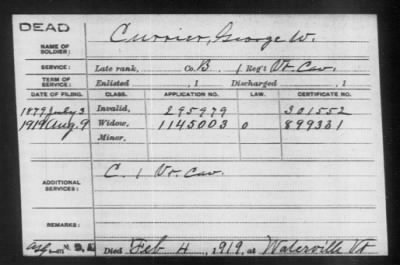 DEAD
NAME OF SOLDIER: Currier, George W.
SERVICE: Late rank, Co. B, 1 Reg't Vt. Cav.
TERM OF SERVICE: Enlisted 1 Discharged 1
DATE OF FILING. CLASS. APPLICATION NO. LAW. CERTIFICATE NO.
1879 July 3 Invalid, 295979 301552
1919 Aug. 9 Widow, 1145003 0 899331
Minor,
ADDITIONAL SERVICES: C. 1 Vt. Cav.
REMARKS:
Died Feb 4, 1919, at Waterville Vt